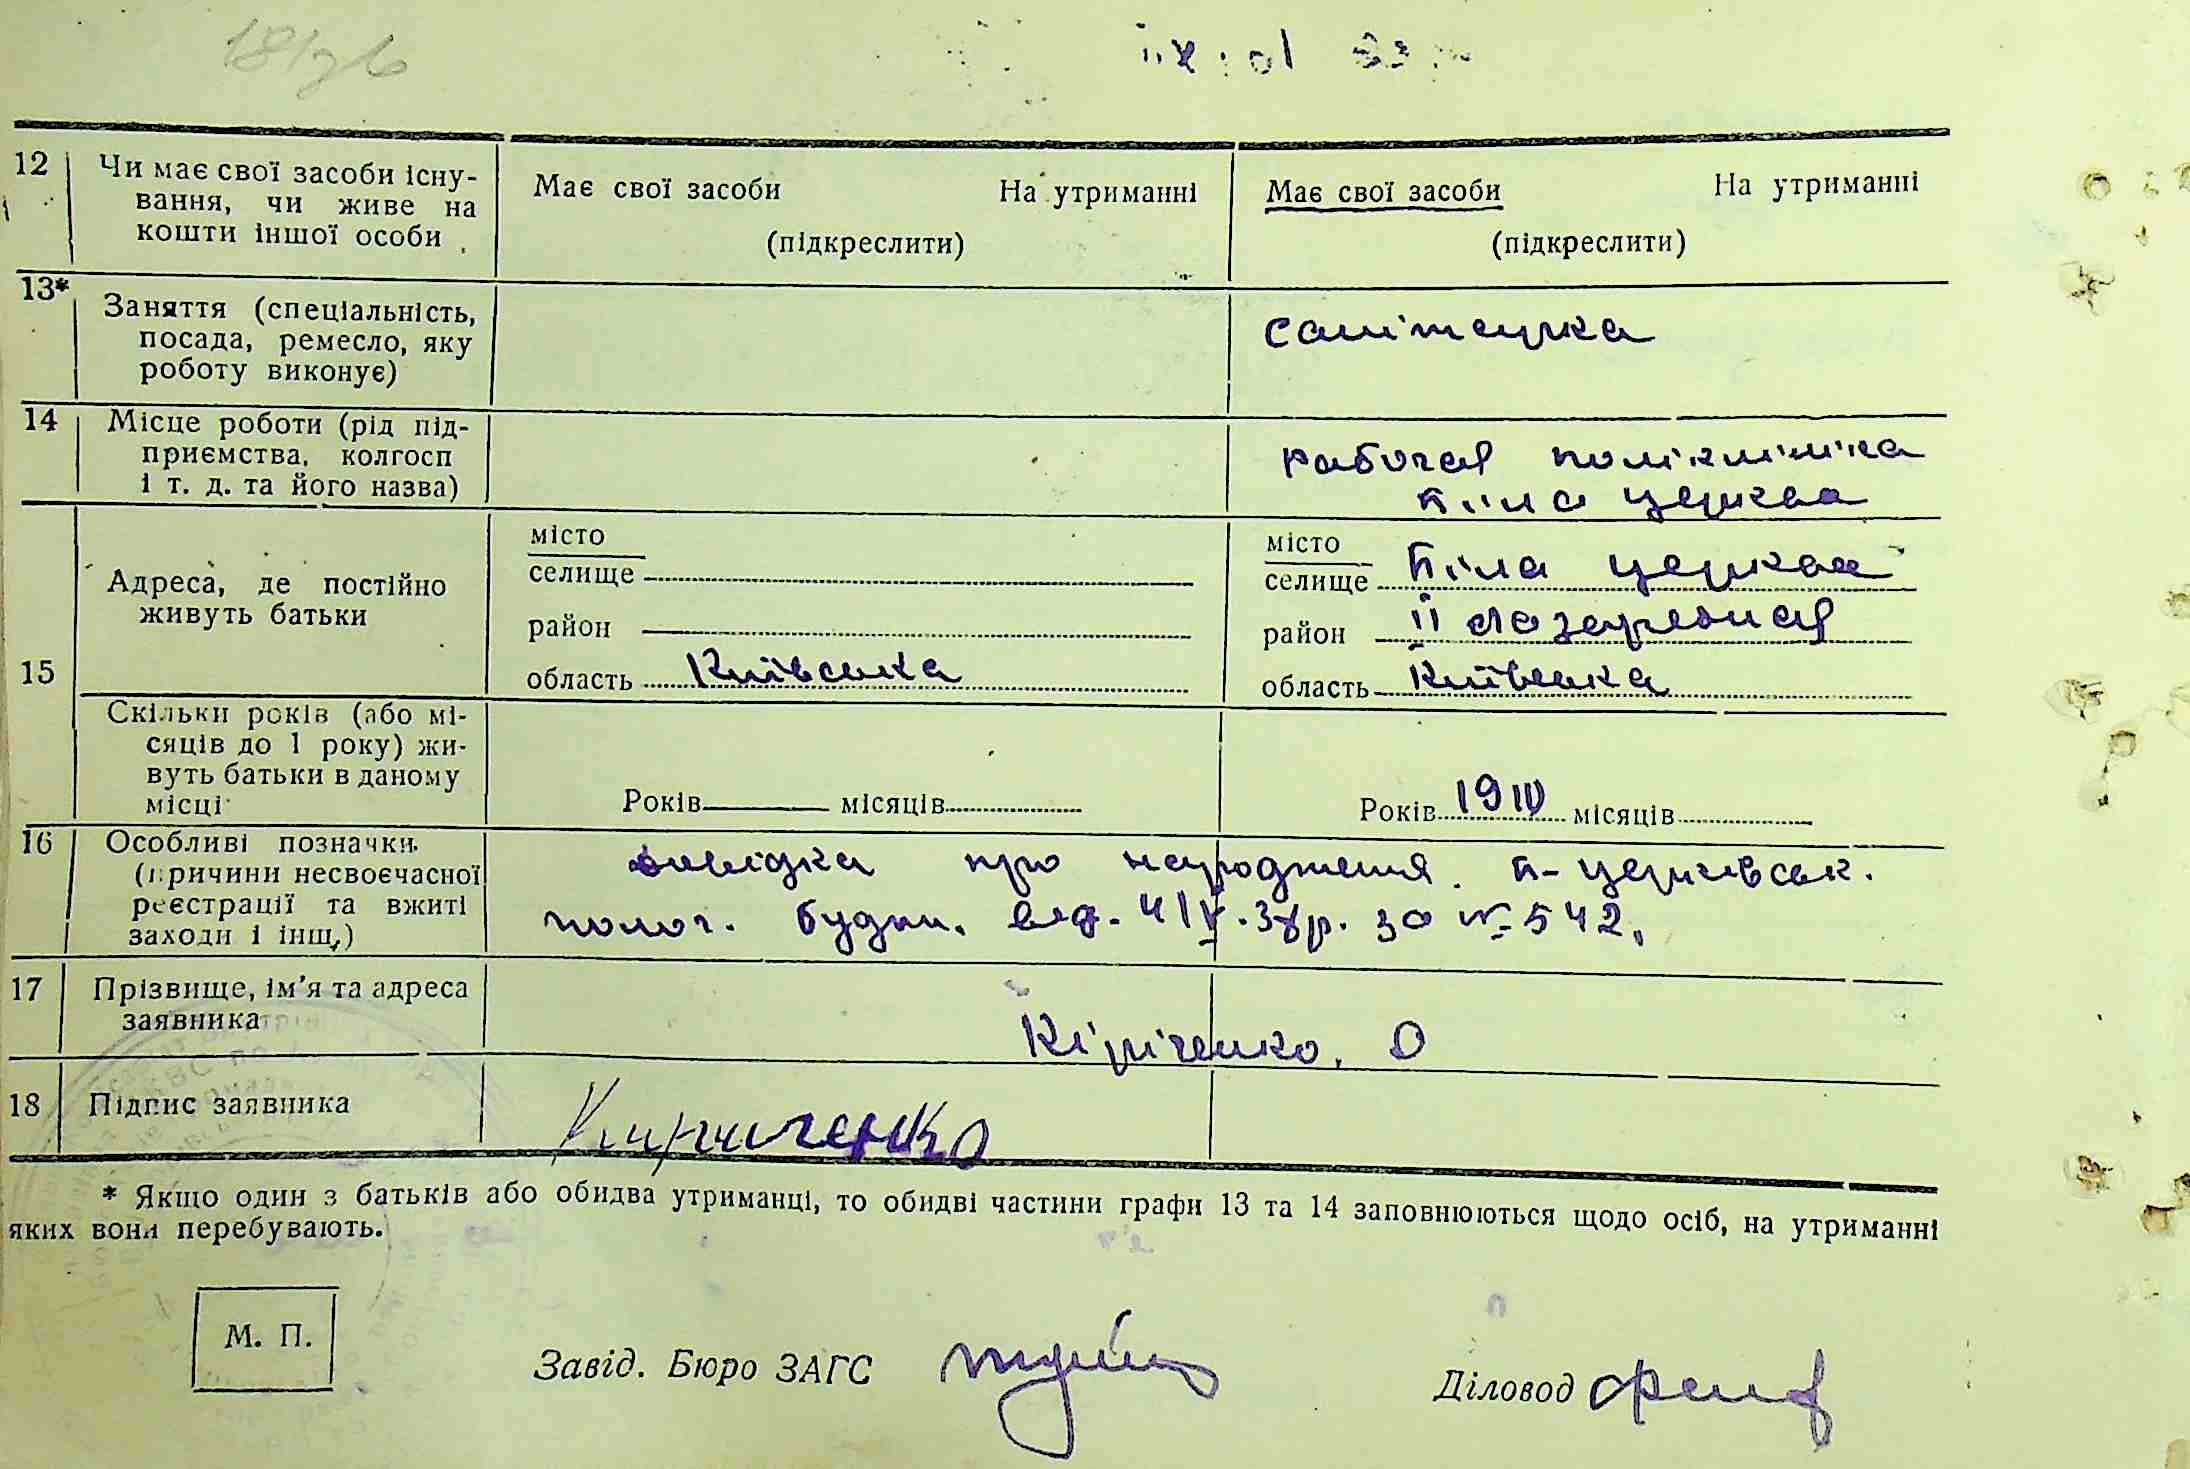 12 Чи має свої засоби існу-
вання, чи живе на
кошти іншої особи
Має свої засоби На утриманні
(підкреслити)
Має свої засоби На утриманні
(підкреслити)
13* Заняття (спеціальність,
посада, ремесло, яку
роботу виконує)
санітарка
14 Місце роботи (рід під-
приємства, колгосп
і т. д. та його назва)
рабочая полікмініка
біла церква
15 Адреса, де постійно
живуть батьки
місто
селище
район
область Київська
місто
селище Біла церква
район II
область Київська
Скільки років (або мі-
сяців до 1 року) жи-
вуть батьки в даному
місці
Років місяців
Років 1910 місяців
16 Особливі позначки
(причини несвоєчасної
реєстрації та вжиті
заходи і інш.)
довідка про народження б-церківськ.
полог. будин. від. 4 IV. 38р. за № 542.
17 Прізвище, ім'я та адреса
заявника
Кіріченко. О
18 Підпис заявника
Кириченко
* Якщо один з батьків або обидва утриманці, то обидві частини графи 13 та 14 заповнюються щодо осіб, на утриманні
яких вони перебувають.
М. П.
Завід. Бюро ЗАГС
Діловод